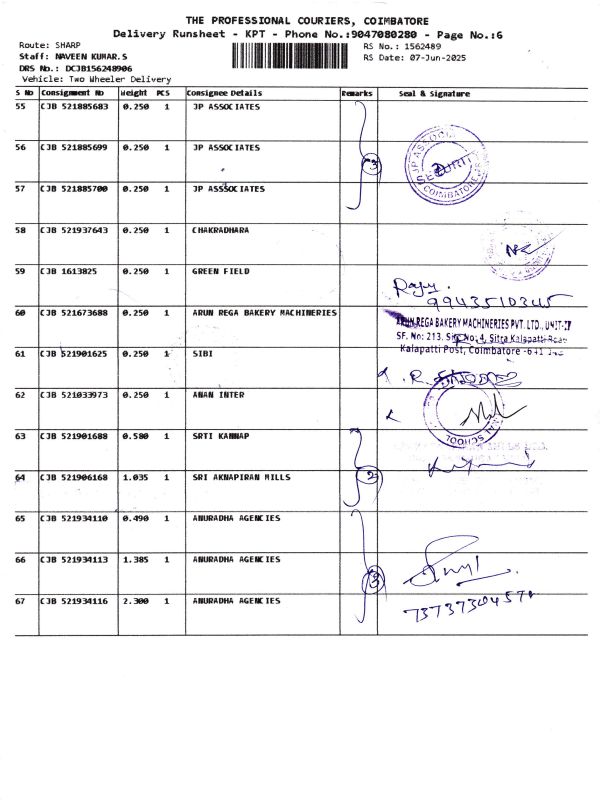 THE PROFESSIONAL COURIERS, COIMBATORE
Delivery Runsheet - KPT - Phone No.:9047080280 - Page No.:6
Route: SHARP RS No.: 1562489
Staff: NAVEEN KUMAR.S RS Date: 07-Jun-2025
DRS No.: DCJB156248906
Vehicle: Two Wheeler Delivery
S No Consignment No Weight PCS Consignee Details Remarks Seal & Signature
55 CJB 521885683 0.250 1 JP ASSOCIATES
56 CJB 521885699 0.250 1 JP ASSOCIATES 3
57 CJB 521885700 0.250 1 JP ASSSOCIATES
JP ASSOCI
COIMBATORE
58 CJB 521937643 0.250 1 CHAKRADHARA
59 CJB 1613825 0.250 1 GREEN FIELD
Raju.
9943510345
60 CJB 521673688 0.250 1 ARUN REGA BAKERY MACHINERIES
ARUN REGA BAKERY MACHINERIES PVT. LTD., UNIT-II
SF. No: 213, Site No: 4, Sitra Kalapatti Road
Kalapatti Post, Coimbatore - 641
61 CJB 521901625 0.250 1 SIBI
62 CJB 521033973 0.250 1 ANAN INTER
SCHOOL
63 CJB 521901688 0.580 1 SRTI KANNAP
64 CJB 521906168 1.035 1 SRI AKNAPIRAN MILLS 2
65 CJB 521934110 0.490 1 ANURADHA AGENCIES
66 CJB 521934113 1.385 1 ANURADHA AGENCIES 3
67 CJB 521934116 2.300 1 ANURADHA AGENCIES